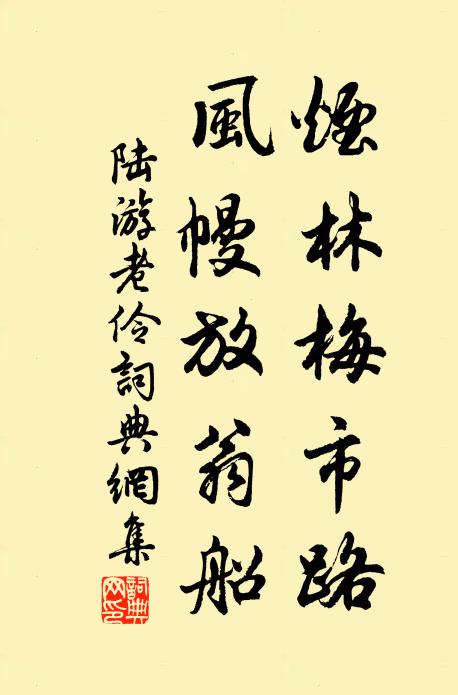 煙林梅市路
風幔放翁船
陸游老伶詞典網集
詞典